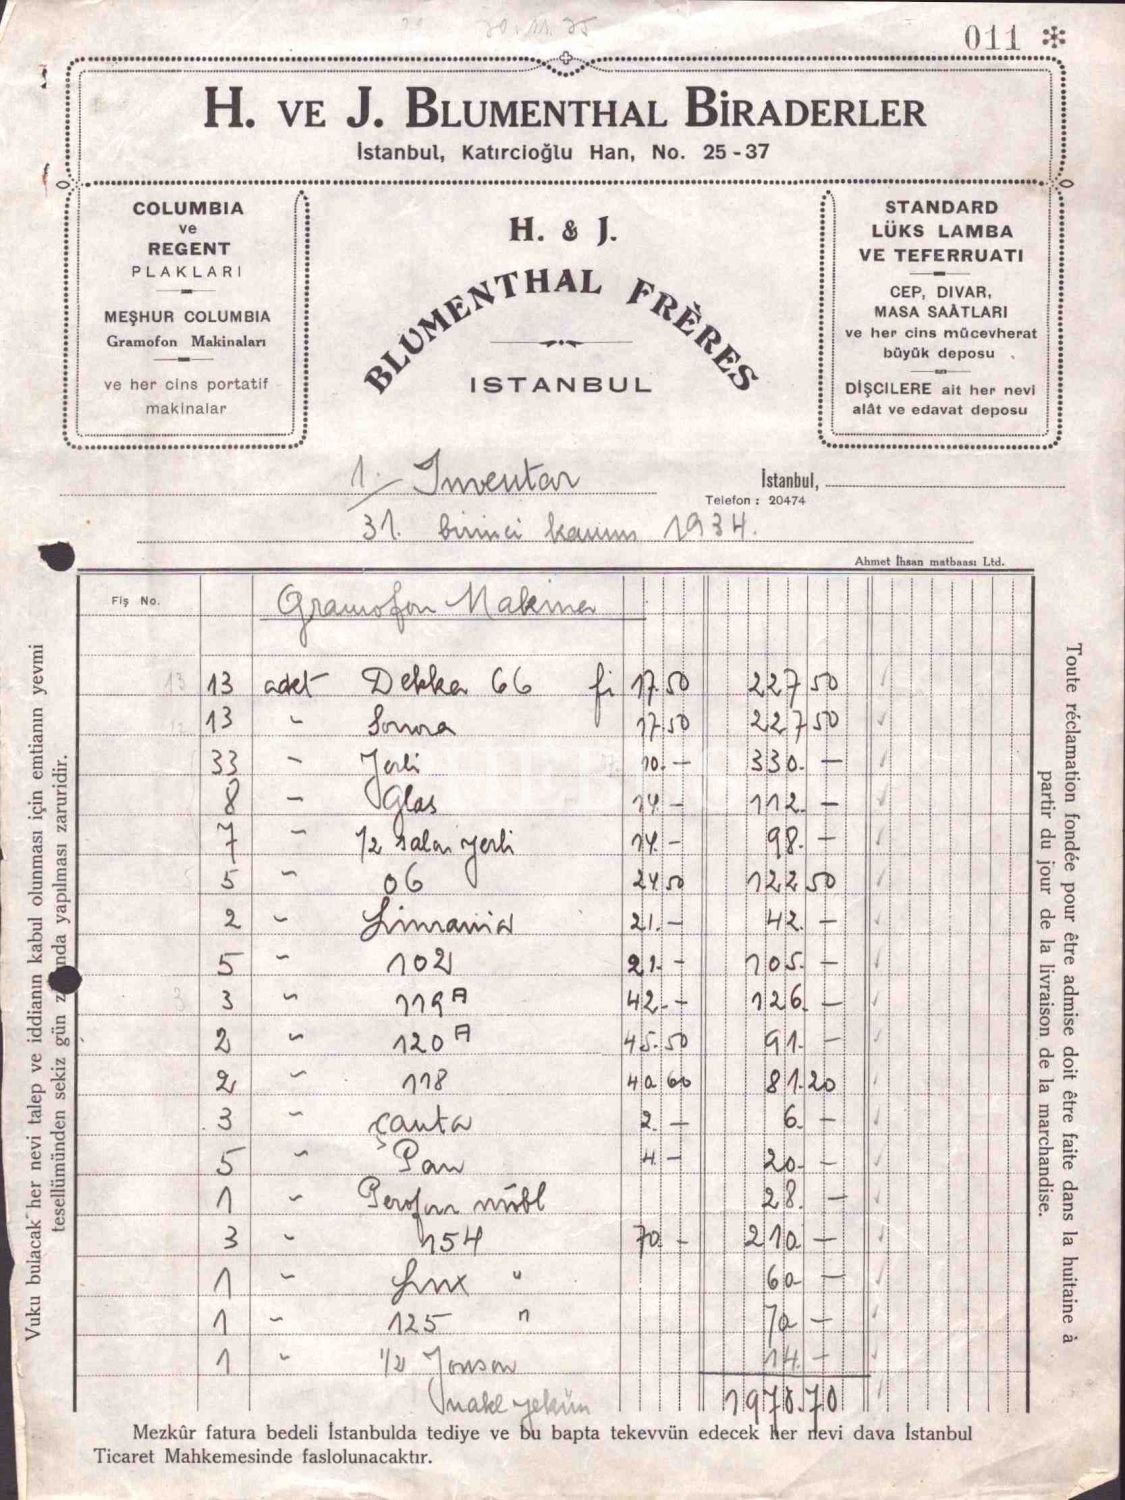 30.11.35
011 *
H. VE J. BLUMENTHAL BİRADERLER
İstanbul, Katırcioğlu Han, No. 25 - 37
COLUMBIA
ve
REGENT
PLAKLARI
MEŞHUR COLUMBIA
Gramofon Makinaları
ve her cins portatif
makinalar
H. & J.
BLUMENTHAL FRÈRES
ISTANBUL
STANDARD
LÜKS LAMBA
VE TEFERRUATI
CEP, DIVAR,
MASA SAÂTLARI
ve her cins mücevherat
büyük deposu
DİŞCILERE ait her nevi
alât ve edavat deposu
1. Inventar
İstanbul,
Telefon : 20474
31. birinci kanun 1934.
Ahmet İhsan matbaası Ltd.
Fiş No.
Gramofon Makines
13 13 adet Dekka 66 fi 17.50 227 50
13 " Sonora 17.50 227 50
33 " Yerli 10.- 330.-
8 " Glas 14.- 112.-
7 " 1/2 salon yerli 14.- 98.-
5 " 06 24 50 122 50
2 " 21.- 42.-
5 " 102 21.- 105.-
3 3 " 119 A 42.- 126.-
2 " 120 A 45.50 91.-
2 " 118 40 60 81.20
3 " çanta 2.- 6.-
5 " Pan 4.- 20.-
1 " Perofon möbl 28.-
3 " 154 70.- 210.-
1 " Lux " 60.-
1 " 125 " 70.-
1 " 1/2 Jonson 14.-
nakl yekûn 1970.70
Vuku bulacak her nevi talep ve iddianın kabul olunması için emtianın yevmi
tesellümünden sekiz gün z nda yapılması zaruridir.
Toute réclamation fondée pour être admise doit être faite dans la huitaine à
partir du jour de la livraison de la marchandise.
Mezkûr fatura bedeli İstanbulda tediye ve bu bapta tekevvün edecek her nevi dava İstanbul
Ticaret Mahkemesinde faslolunacaktır.